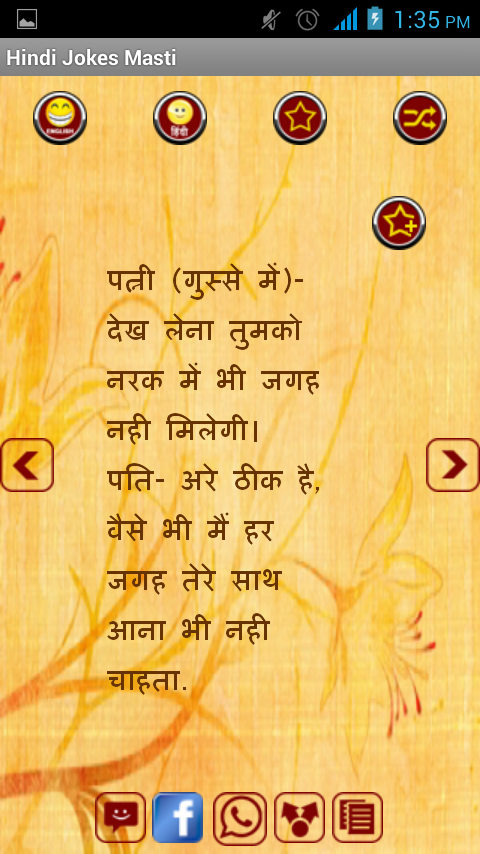 1:35 PM
Hindi Jokes Masti
ENGLISH
हिंदी
पत्नी (गुस्से में)-
देख लेना तुमको
नरक में भी जगह
नही मिलेगी।
पति- अरे ठीक है,
वैसे भी मैं हर
जगह तेरे साथ
आना भी नही
चाहता.